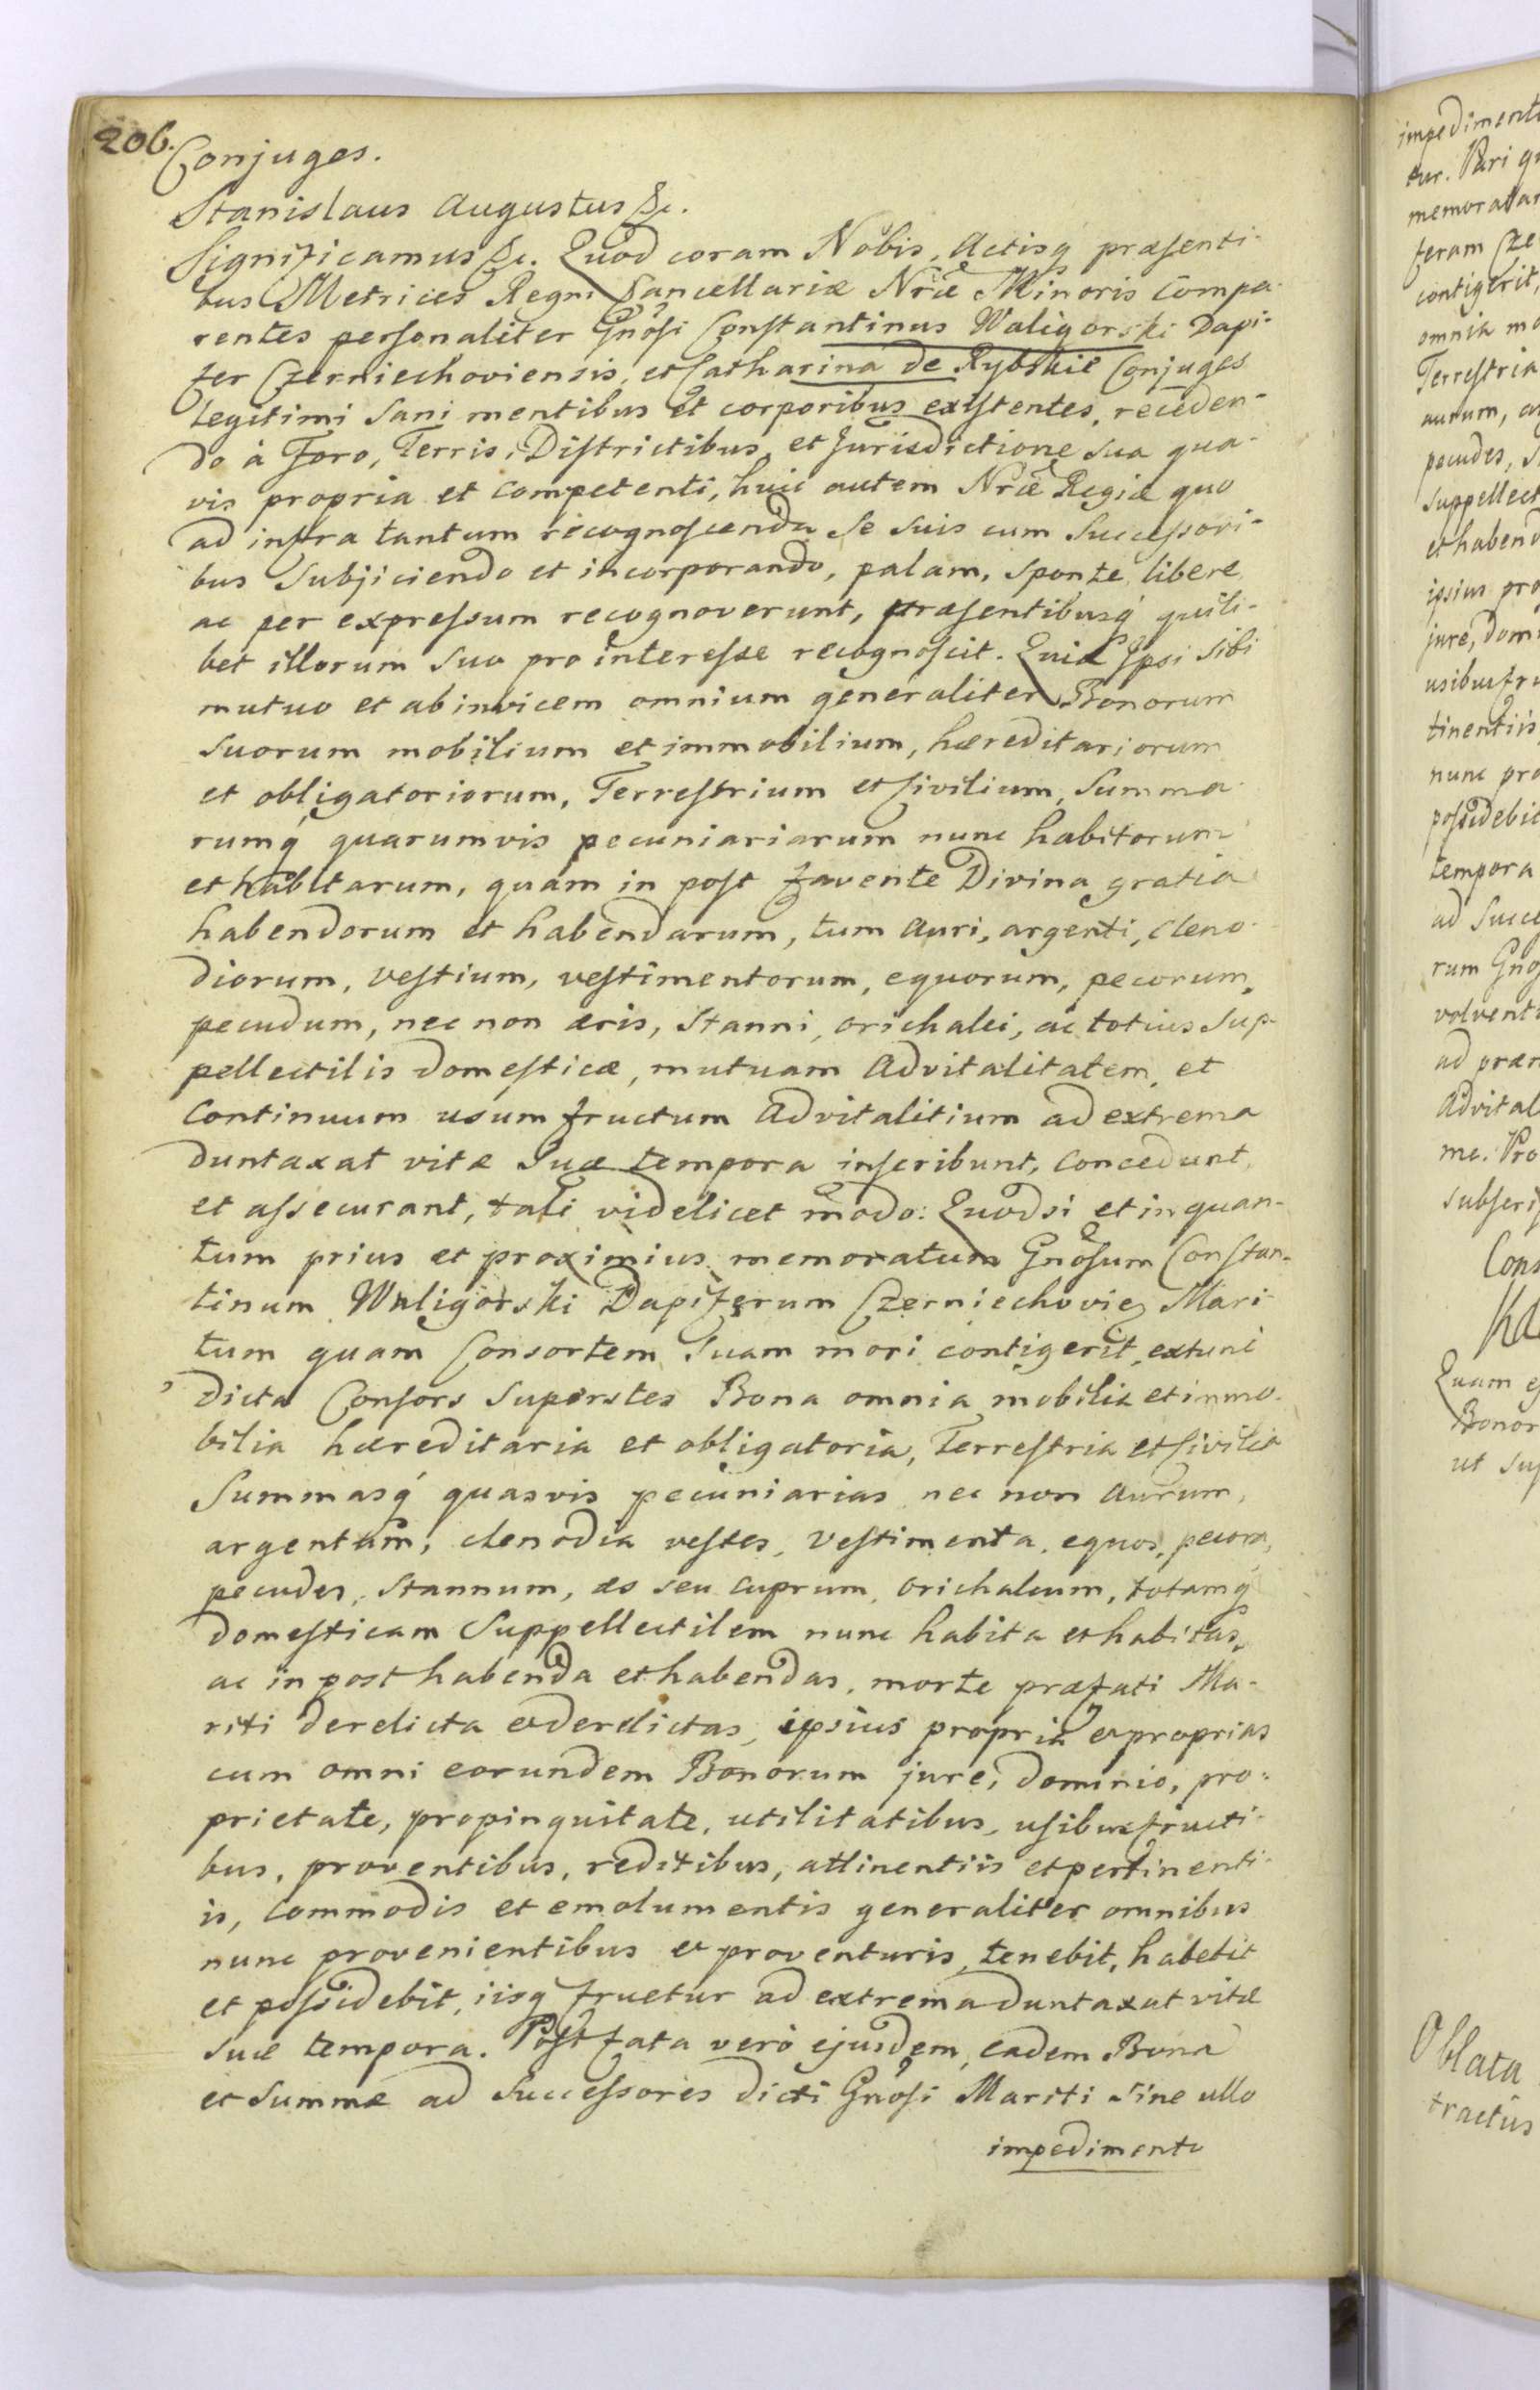 206.
Conjuges.
Stanislaus Augustus &c.
Significamus &c. Quod coram Nobis, Actisq́ præsenti-
bus Metrices Regni Cancellariæ Nræ Minoris Compa-
rentes personaliter Gnosi Constantinus Waligorski Dapi-
fer Czerniechoviensis, et Catharina de Rybskie Conjuges
Legitimi Sani mentibus et corporibus existentes, receden-
do à Foro, Terris, Districtibus, et Jurisdictione sua qua-
vis propria et competenti, huic autem Nræ Regiæ quo
ad infra tantum recognoscenda se suis cum Successori-
bus Subjiciendo et incorporando, palam, sponte, libere
ac per expressum recognoverunt, præsentibusq́ quili-
bet illorum suo pro interesse recognoscit. Quia Ipsi sibi
mutuo et ab invicem omnium generaliter Bonorum
suorum mobilium et immobilium, hæreditariorum
et obligatoriorum, Terrestrium et Civilium, Summa-
rumq́ quarumvis pecuniariarum nunc habitorum
et habitarum, quàm in post favente Divina gratia
habendorum et habendarum, tum Auri, argenti, cleno-
diorum, vestium, vestimentorum, equorum, pecorum,
pecudum, nec non æris, Stanni, orichalci, ac totius Sup-
pellectilis domesticæ, mutuam Advitalitatem, et
Continuum usum fructum Advitalitium ad extrema
duntaxat vitæ suæ tempora inscribunt, Concedunt,
et assecurant, tali videlicet modo: Quodsi et in quan-
tum prius et proximius memoratum Gnosum Constan-
tinum Waligorski Dapiferum Czerniechovien Mari-
tum quam Consortem Suam mori contigerit, extunc
dicta Consors Superstes Bona omnia mobilia et immo-
bilia hæreditaria et obligatoria, Terrestria et Civilia
Summasq́ quasvis pecuniarias nec non Aurum,
argentum, clenodia vestes, Vestimenta, equos, pecora,
pecudes, Stannum, æs seu Cuprum, orichalcum, totamq́
domesticam Suppellectilem nunc habita et habitas,
ac in post habenda et habendas, morte præfati Ma-
riti derelicta et derelictas, ipsius propria et proprias
cum omni eorundem Bonorum jure, dominio, pro-
prietate, propinquitate, utilitatibus, usibusfructi-
bus, proventibus, reditibus, attinentiis et pertinenti-
is, Commodis et emolumentis generaliter omnibus
nunc provenientibus et proventuris, tenebit, habebit
et possidebit, iisq́ fruetur ad extrema duntaxat vitæ
suæ tempora. Post fata verò ejusdem, eadem Bona
et Summæ ad Successores dicti Gnosi Mariti sine ullo
impedimento
impediment
tur. Pari
contigerit,
omnia
Terrestria
aurum,
pecudes,
Suppellect
et habend
ipsius pro
jure, dom
tinentiis
nunc pro
possidebit
tempora
ad Succe
rum Gnos
volvent
ad
Advital
me. Pro
Subscri
Cons
Quam
Bonor
ut Sup
Oblata
tractus